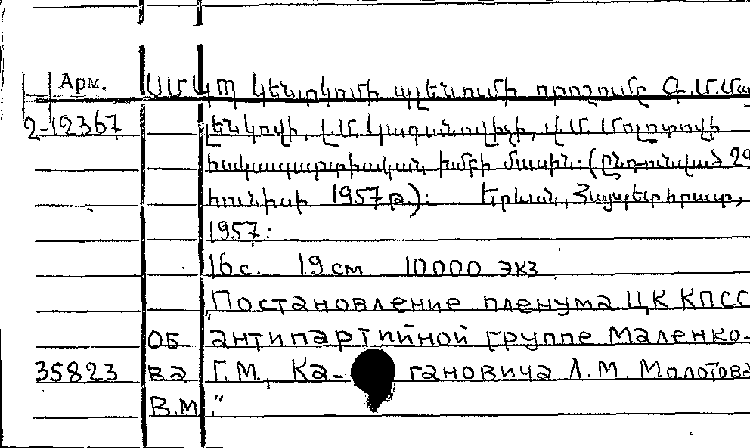 Арм. ՍՄԿՊ կենտկոմի պլենումի որոշումը Գ.Մ.Մա
2-12367 լենկովի, Լ.Մ. Կագանովիչի, Վ.Մ. Մոլոտովի
հակապարտիական խմբի մասին: (Ընդունված 29
հունիսի 1957թ.): Երևան, Հայպետհրատ,
1957:
16 с. 19 см 10000 экз
"Постановление пленума ЦК КПСС
об антипартийной группе Маленко-
35823 ва Г.М., Ка- гановича Л.М Молотова
В.М."